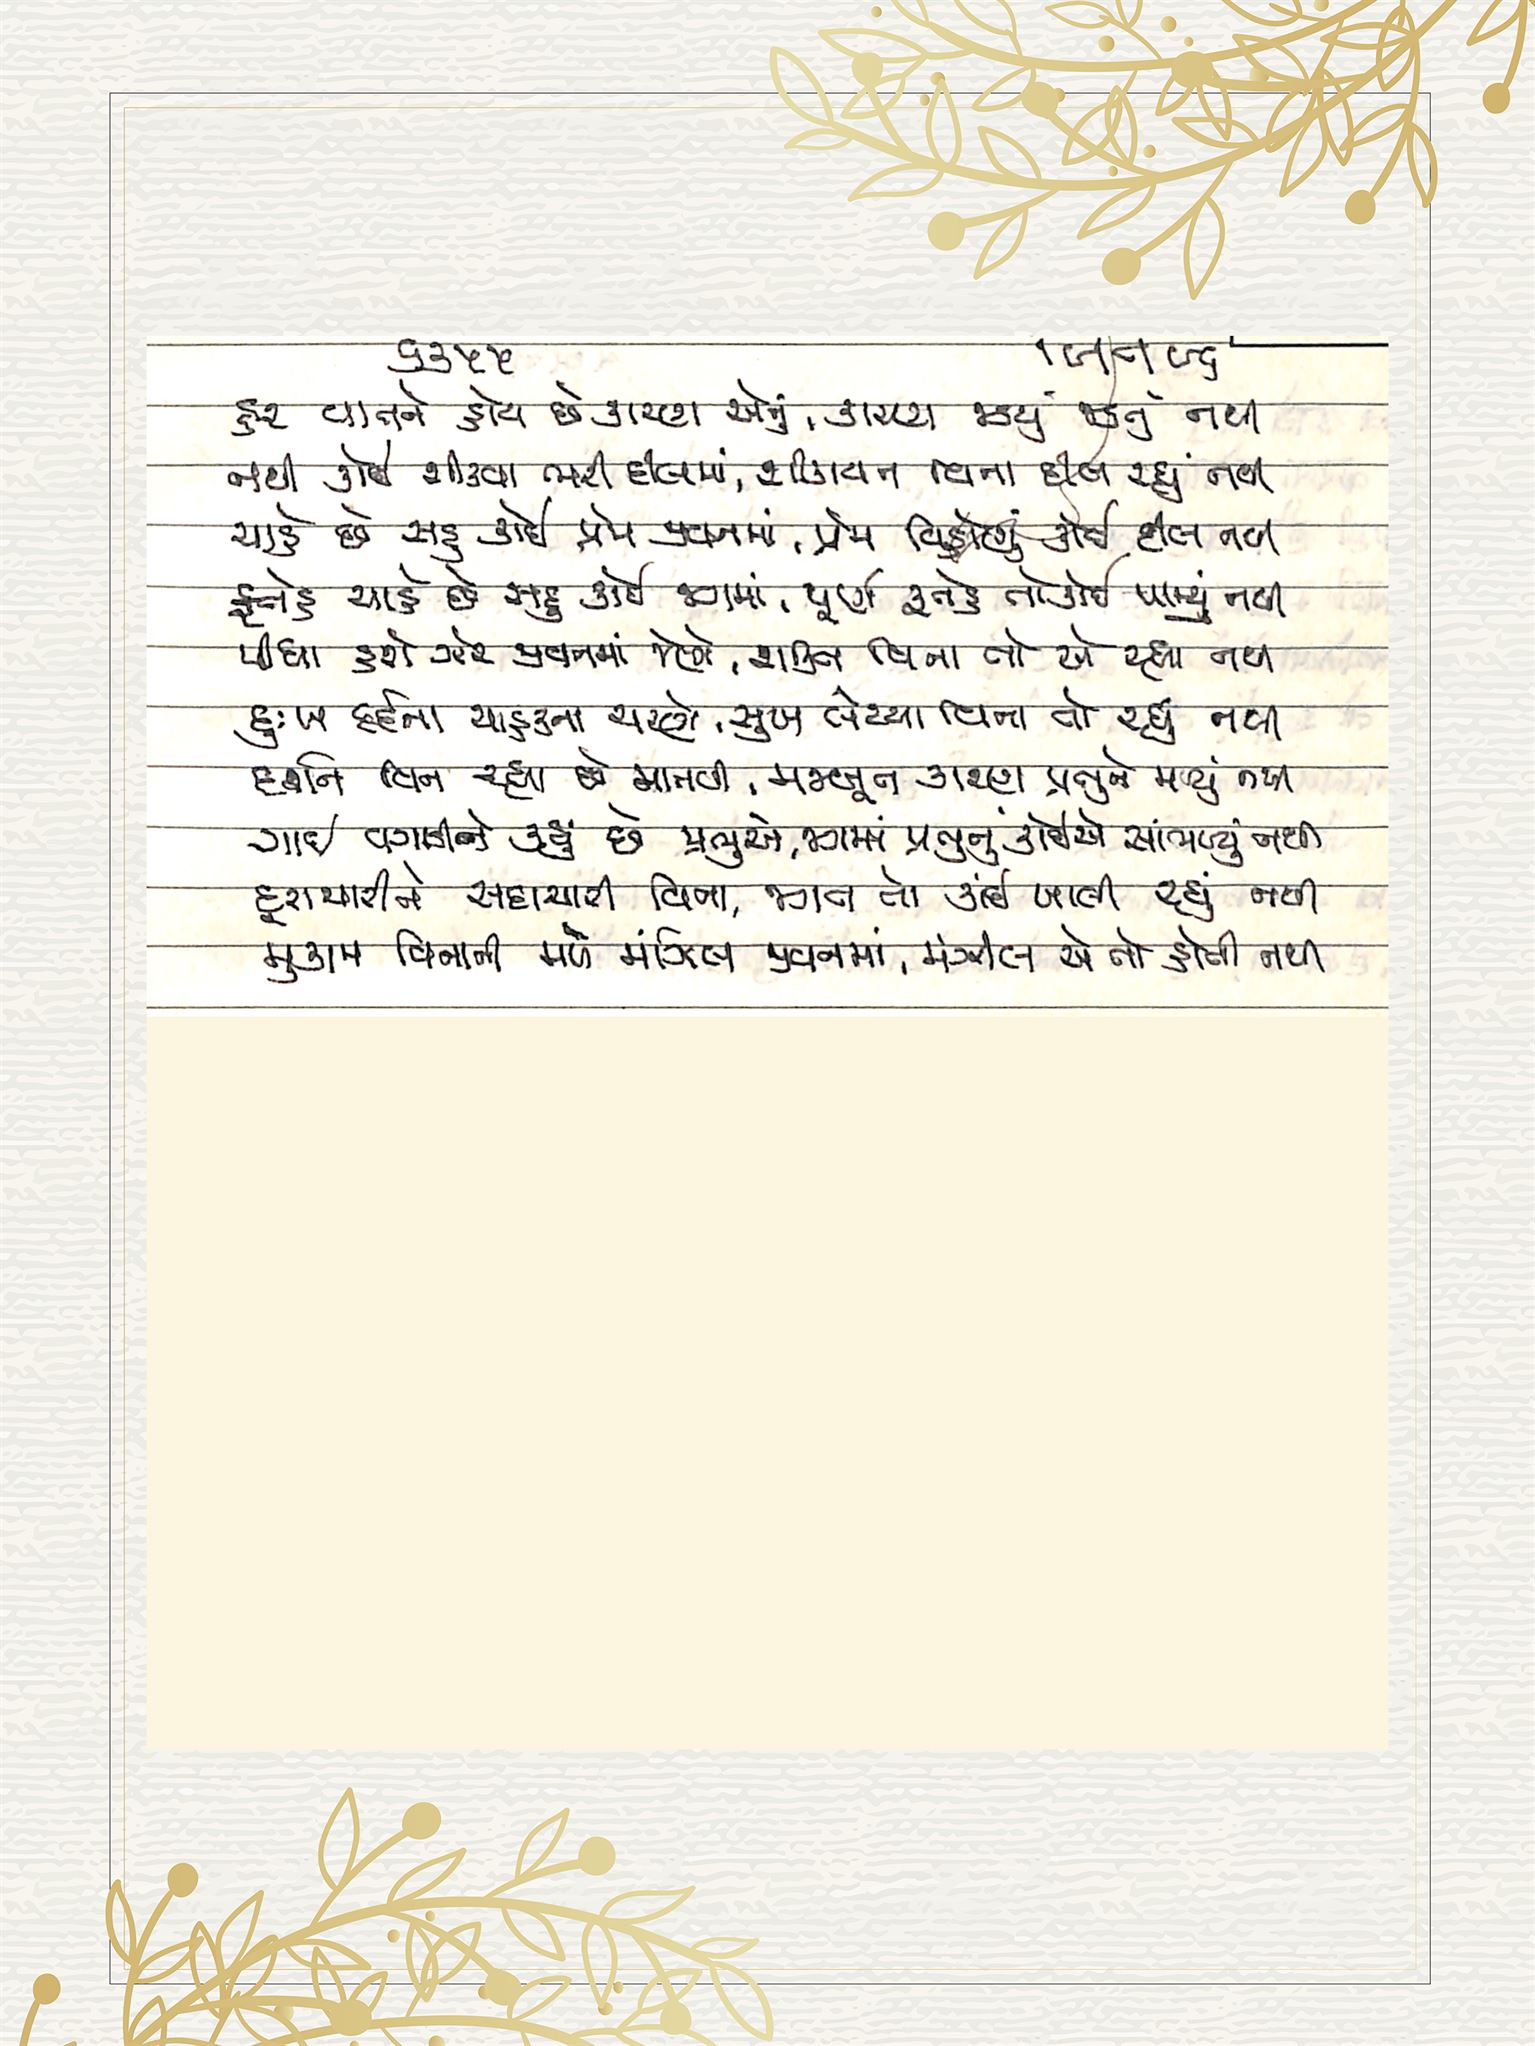 ૬૩૫૫
હર વાતને હોય છે કારણ એનું, કારણ જડયું જડતું નથી
નથી કોઈ શીકવા ભારી દીલમાં, શીકાયત વિના દીલ રહ્યું નથી
ચાહે છે સહુ કોઈ પ્રેમ જીવનમાં, પ્રેમ વિહોણું કોઈ દીલ નથી
સ્નેહ ચાહે છે સહુ કોઈ જગમાં, પૂર્ણ સ્નેહ તો કોઈ પામ્યું નથી
પીધા હશે ઝેર જીવનમાં જેણે, શક્તિ વિના તો એ રહ્યા નથી
દુઃખ દર્દના ચાહકના ચરણે, સુખ લેટયા વિના તો રહ્યું નથી
દર્શન વિન રહ્યા છે માનવી, મજબૂત કારણ પ્રભુને મળ્યું નથી
ગાઈ વગાડીને કહ્યું છે પ્રભુએ, જગમાં પ્રભુનું કોઈએ સાંભળ્યું નથી
દૂરાચારીને સદાચારી વિના, જગત તો કાંઈ ખાલી રહ્યું નથી
મુકામ વિનાની મળે મંઝિલ જીવનમાં, મંઝીલ એ તો હોતી નથી